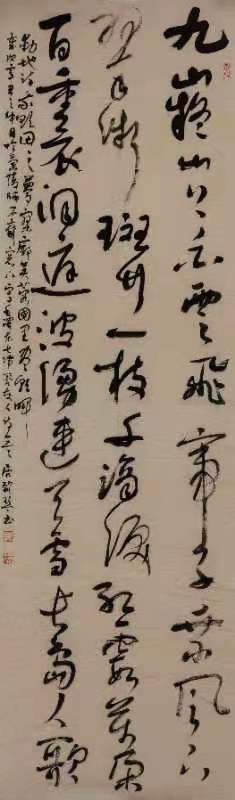 九嶷山上白雲飛帝子乘風下
翠微斑竹一枝千滴淚紅霞萬朵
百重衣洞庭波湧連天雪長島人歌
動地詩我欲因之夢寥廓芙蓉國里盡朝暉
毛澤東七律答友人